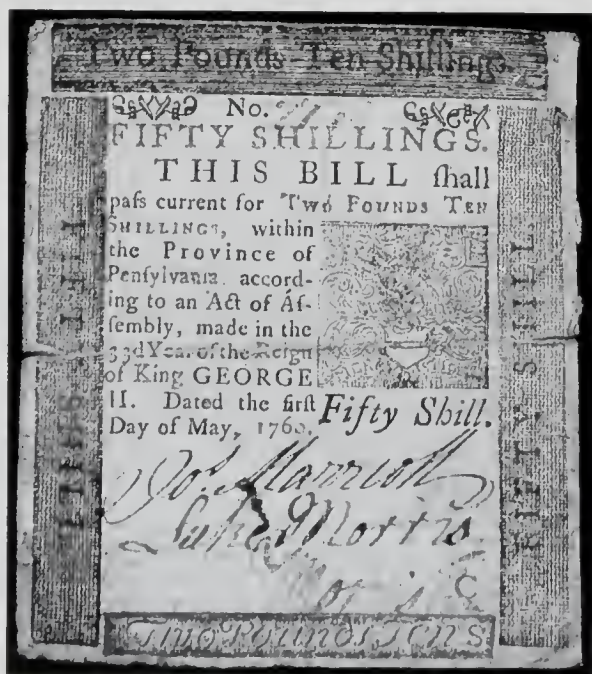 Two Pounds Ten Shillings.
No.
FIFTY SHILLINGS.
THIS BILL ſhall
paſs current for Two Pounds Ten
Shillings, within
the Province of
Penſylvania, accord-
ing to an Act of Aſ-
ſembly, made in the
33d Year of the Reign
of King GEORGE
II. Dated the firſt
Day of May, 1760.
Fifty Shill.
FIFTY SHILL
Morris
Two Pounds, Ten S